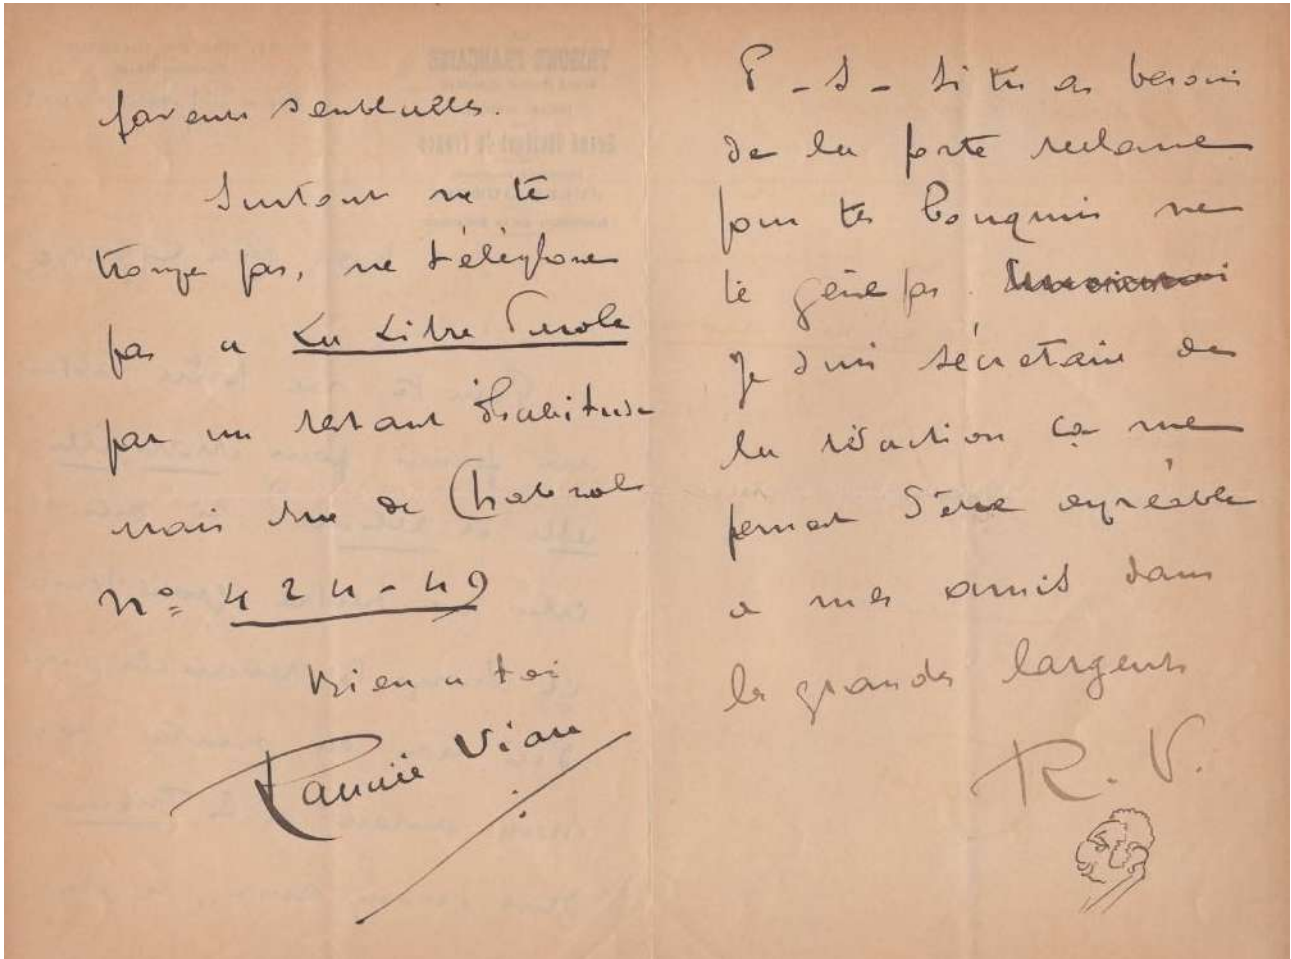 faveurs sensuelles.
Surtout ne te
trompe pas, ne téléphone
pas a La Libre Parole
par un restant d'habitude
mais rue de Chabrol
n° 424-49
bien a toi
Vian
P-S- Si tu as besoin
de la forte reclame
pour tes bouquins ne
te gène pas.
Je suis sécretaire de
la rédaction ça me
permet d'être agréable
a mes amis dans
les grandes largeurs
R. V.